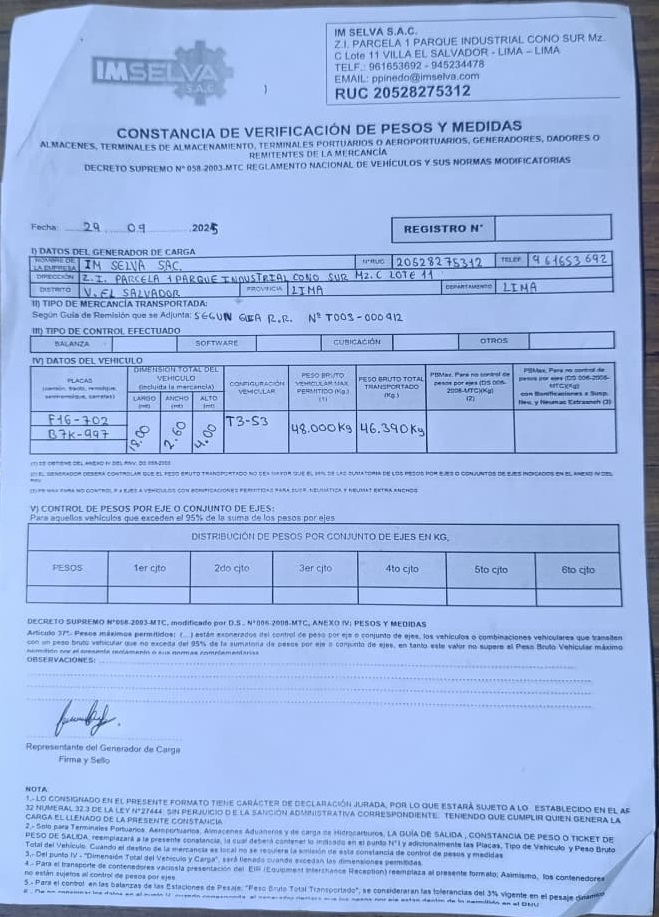 IMSELVA
S.A.C
IM SELVA S.A.C.
Z.I. PARCELA 1 PARQUE INDUSTRIAL CONO SUR Mz.
C Lote 11 VILLA EL SALVADOR - LIMA – LIMA
TELF.: 961653692 - 945234478
EMAIL: ppinedo@imselva.com
RUC 20528275312
CONSTANCIA DE VERIFICACIÓN DE PESOS Y MEDIDAS
ALMACENES, TERMINALES DE ALMACENAMIENTO, TERMINALES PORTUARIOS O AEROPORTUARIOS, GENERADORES, DADORES O
REMITENTES DE LA MERCANCÍA
DECRETO SUPREMO Nº 058-2003-MTC REGLAMENTO NACIONAL DE VEHÍCULOS Y SUS NORMAS MODIFICATORIAS
Fecha: 29 09 2025
REGISTRO N°
I) DATOS DEL GENERADOR DE CARGA
NOMBRE DE LA EMPRESA IM SELVA SAC. N°RUC 20528275312 TELEF. 961653692
DIRECCIÓN Z.I. PARCELA 1 PARQUE INDUSTRIAL CONO SUR Mz. C LOTE 11
DISTRITO V. EL SALVADOR PROVINCIA LIMA DEPARTAMENTO LIMA
II) TIPO DE MERCANCÍA TRANSPORTADA:
Según Guía de Remisión que se Adjunta: SEGUN GUIA R.R. Nº T003-000912
III) TIPO DE CONTROL EFECTUADO
BALANZA SOFTWARE CUBICACIÓN OTROS
IV) DATOS DEL VEHICULO
PLACAS
DIMENSIÓN TOTAL DEL VEHÍCULO (incluida la mercancía)
LARGO (mt) ANCHO (mt) ALTO (mt)
CONFIGURACIÓN VEHICULAR
PESO BRUTO VEHICULAR MAX PERMITIDO (Kg.) (1)
PESO BRUTO TOTAL TRANSPORTADO (Kg.)
PBMax. Para no control de pesos por ejes (DS 006-2008-MTC)(Kg) (2)
PBMax. Para no control de pesos por ejes (DS 006-2008-MTC)(Kg) con Bonificaciones x Susp. Neu. y Neumas Extraanch (3)
F16-702
B7K-997
18.00 2.60 4.00 T3-S3 48.000Kg 46.390Kg
(1) SE OBTIENE DEL ANEXO IV DEL RNV. DS 058-2003
V) CONTROL DE PESOS POR EJE O CONJUNTO DE EJES:
Para aquellos vehículos que exceden el 95% de la suma de los pesos por ejes
DISTRIBUCIÓN DE PESOS POR CONJUNTO DE EJES EN KG.
PESOS 1er cjto 2do cjto 3er cjto 4to cjto 5to cjto 6to cjto
DECRETO SUPREMO N°058-2003-MTC, modificado por D.S. N°006-2008-MTC, ANEXO IV: PESOS Y MEDIDAS
Artículo 37°- Pesos máximos permitidos: (...) están exonerados del control de peso por eje o conjunto de ejes, los vehículos o combinaciones vehiculares que transiten
con un peso bruto vehicular que no exceda del 95% de la sumatoria de pesos por eje o conjunto de ejes, en tanto este valor no supere el Peso Bruto Vehicular máximo
permitido por el presente reglamento o sus normas complementarias
OBSERVACIONES:
Representante del Generador de Carga
Firma y Sello
NOTA:
1.- LO CONSIGNADO EN EL PRESENTE FORMATO TIENE CARÁCTER DE DECLARACIÓN JURADA, POR LO QUE ESTARÁ SUJETO A LO ESTABLECIDO EN EL
32 NUMERAL 32.3 DE LA LEY N°27444; SIN PERJUICIO DE LA SANCIÓN ADMINISTRATIVA CORRESPONDIENTE. TENIENDO QUE CUMPLIR QUIEN GENERA LA
CARGA EL LLENADO DE LA PRESENTE CONSTANCIA
2.- Solo para Terminales Portuarios, Aeroportuarios, Almacenes Aduaneros y de carga de Hidrocarburos, LA GUÍA DE SALIDA, CONSTANCIA DE PESO O TICKET DE
PESO DE SALIDA, reemplazará a la presente constancia, la cual deberá contener lo indicado en el punto N°I y adicionalmente las Placas, Tipo de Vehículo y Peso Bruto
Total del Vehículo. Cuando el destino de la mercancía es local no se requiere la emisión de esta constancia de control de pesos y medidas
3.- Del punto IV - "Dimensión Total del Vehículo y Carga", será llenado cuando excedan las dimensiones permitidas.
4.- Para el transporte de contenedores vacíos la presentación del EIR (Equipment Interchance Reception) reemplaza al presente formato; Asimismo, los contenedores
no están sujetos al control de pesos por ejes
5.- Para el control en las balanzas de las Estaciones de Pesaje; "Peso Bruto Total Transportado", se consideraran las tolerancias del 3% vigente en el pesaje dinámico